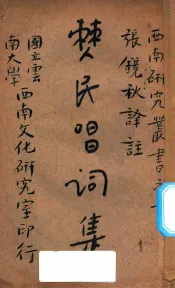 西南研究叢書之
張鏡秋譯註
僰民唱词集
國立雲
南大學
西南文化研究室印行